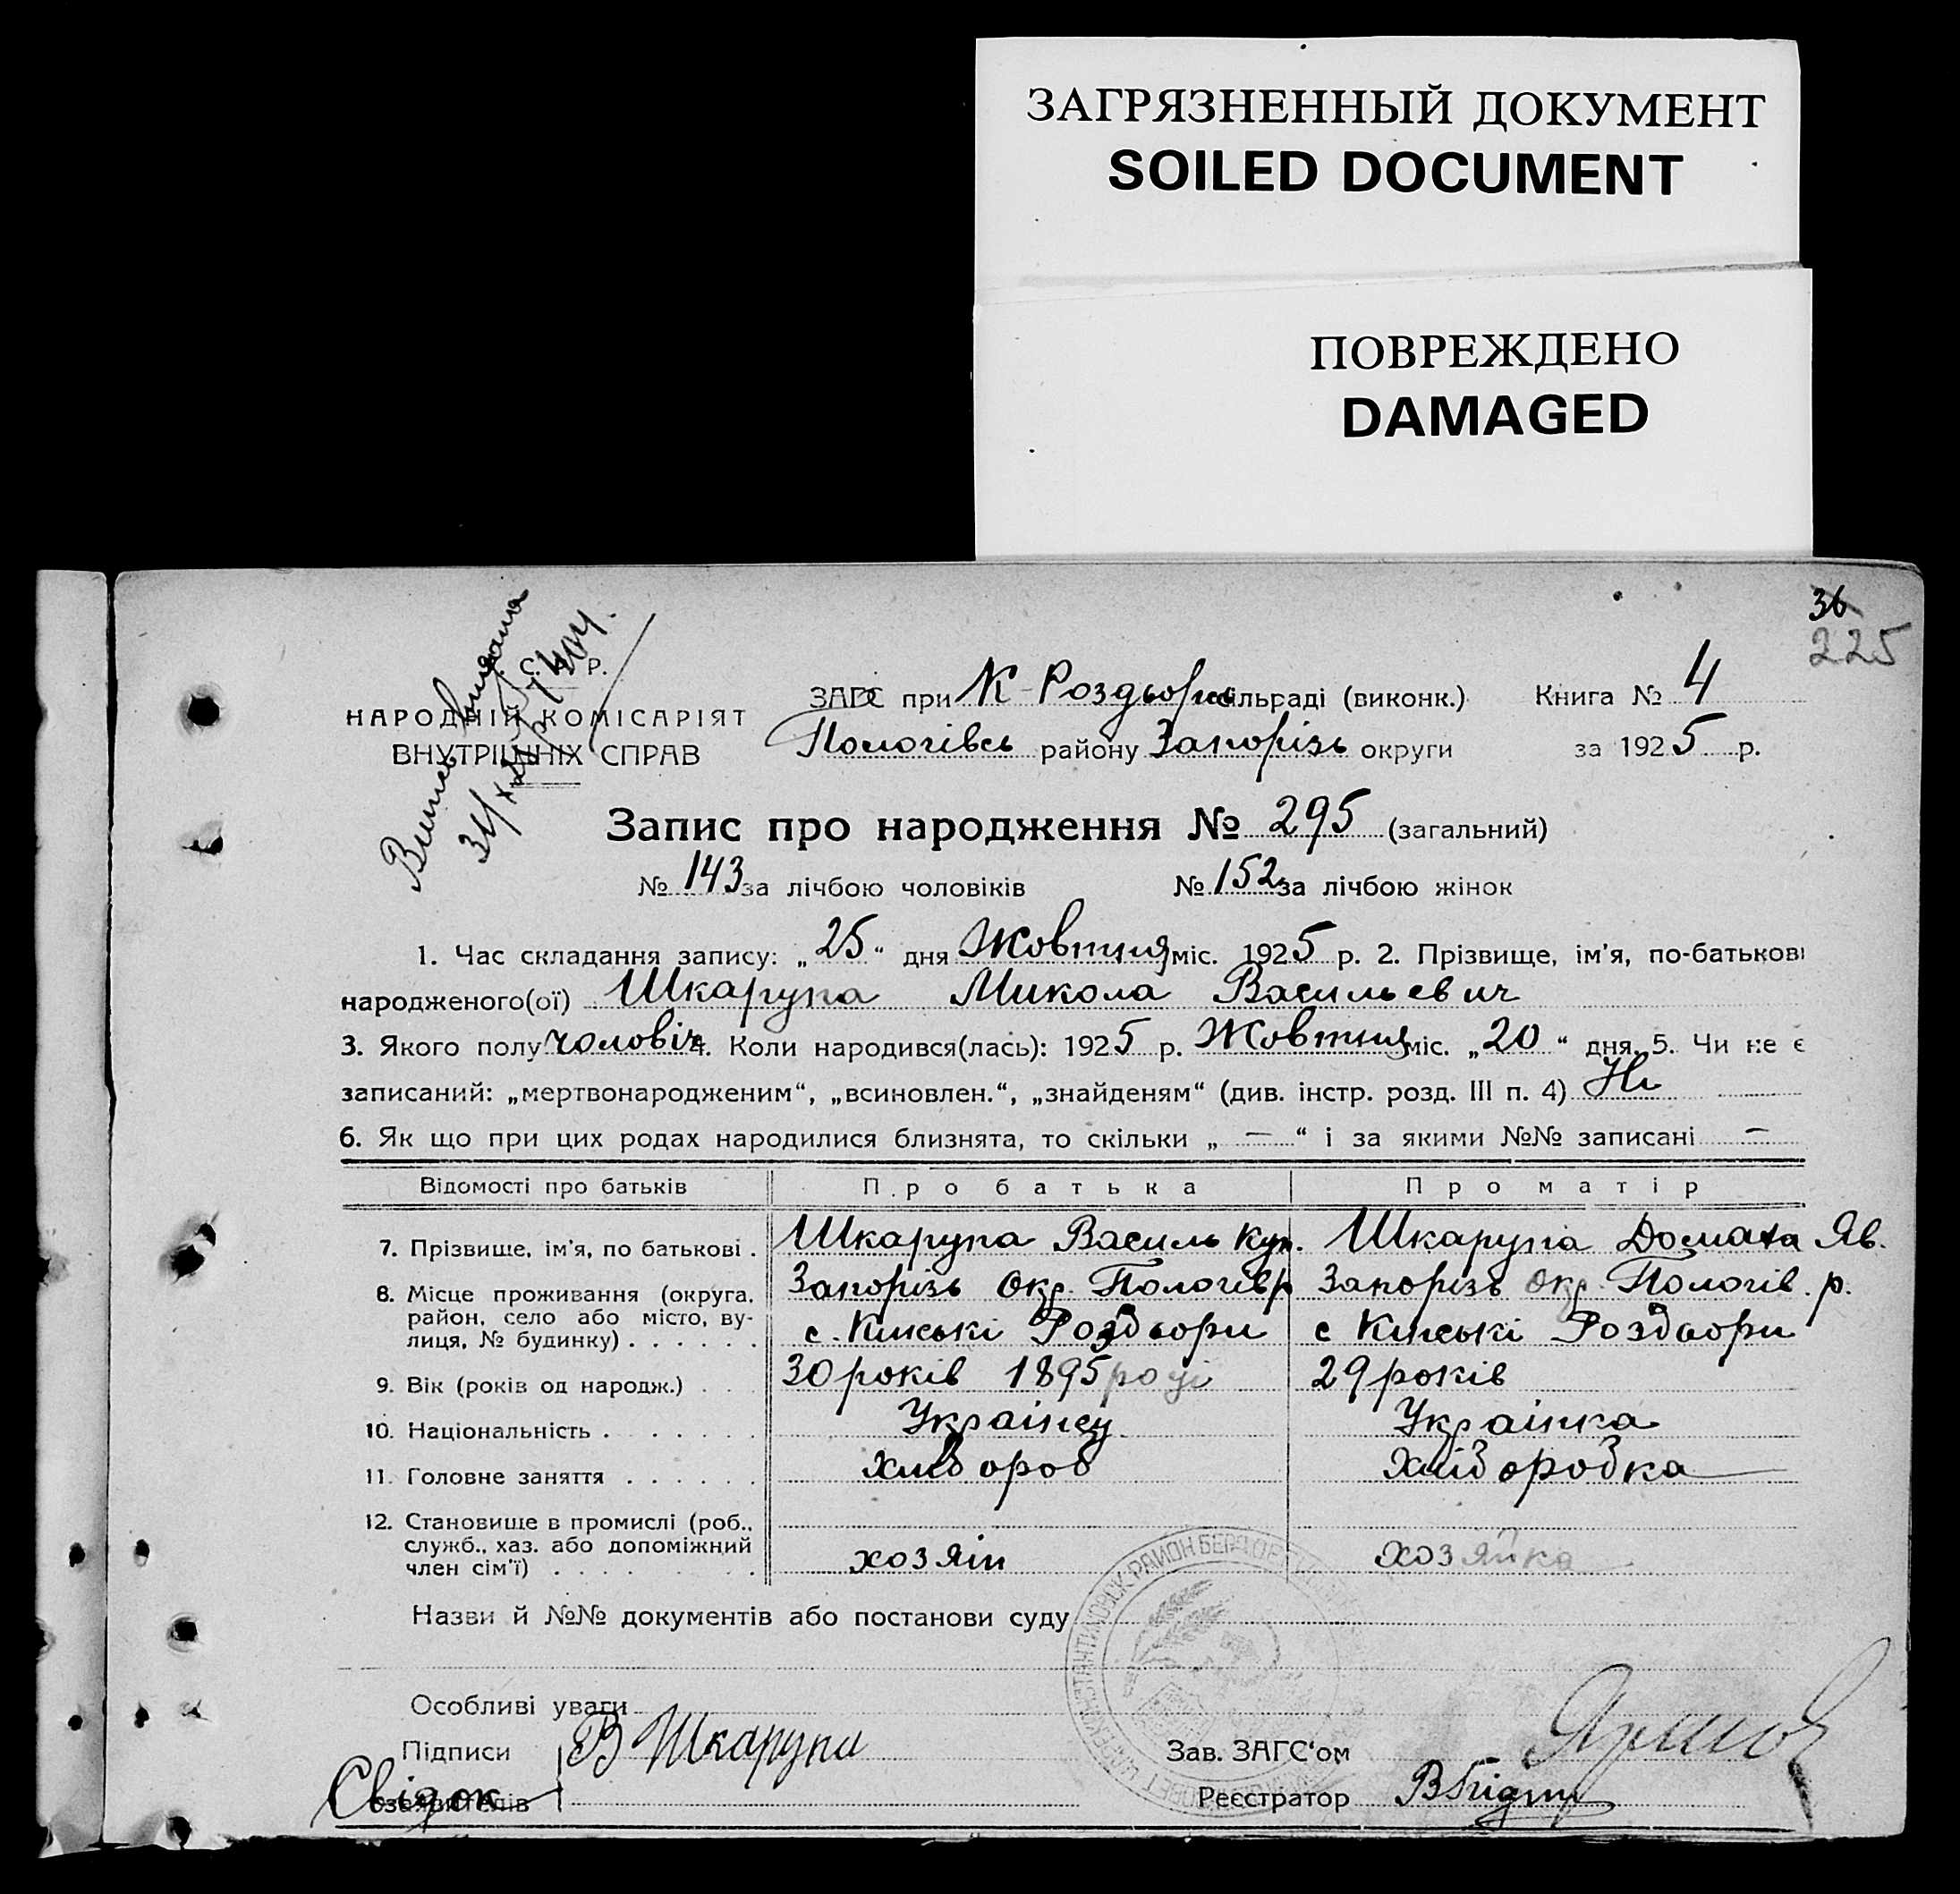 ЗАГРЯЗНЕННЫЙ ДОКУМЕНТ
SOILED DOCUMENT
ПОВРЕЖДЕНО
DAMAGED
36
225
С. Р.
НАРОДНІЙ КОМІСАРІЯТ
ВНУТРІШНІХ СПРАВ
ЗАГС при К-Роздорс сільраді (виконк.) Книга № 4
Пологівсь району Запорізь округи за 1925 р.
Запис про народження № 295 (загальний)
№ 143 за лічбою чоловіків № 152 за лічбою жінок
1. Час складання запису: „25“ дня Жовтня міс. 1925 р. 2. Прізвище, ім'я, по-батькові
народженого(ої) Шкарупа Микола Васильевич
3. Якого полу чоловіч 4. Коли народився(лась): 1925 р. Жовтня міс. „20“ дня. 5. Чи не є
записаний: „мертвонародженим“, „всиновлен.“, „знайденям“ (див. інстр. розд. III п. 4) Ні
6. Як що при цих родах народилися близнята, то скільки „ — “ і за якими №№ записані —
Відомості про батьків Про батька Про матір
7. Прізвище, ім'я, по батькові . Шкарупа Василь Куп. Шкарупа Домаха Яв.
8. Місце проживання (округа, Запорізь Окр. Пологів р Запорізь Окр. Пологів. р.
район, село або місто, ву-
лиця, № будинку) . . . . . . с. Кінські Роздори с Кінські Роздори
9. Вік (років од народж.) . . . 30 років 1895 році 29 років
10. Національність . . . . . . . Українец Українка
11. Головне заняття . . . . . . Хлібороб Хліборобка
12. Становище в промислі (роб.,
служб., хаз. або допоміжний
член сім'ї) . . . . . . . . хозяін хозяйка
Назви й №№ документів або постанови суду
Особливі уваги
Підписи В Шкарупа Зав. ЗАГС'ом
Свідок заявителів Реєстратор